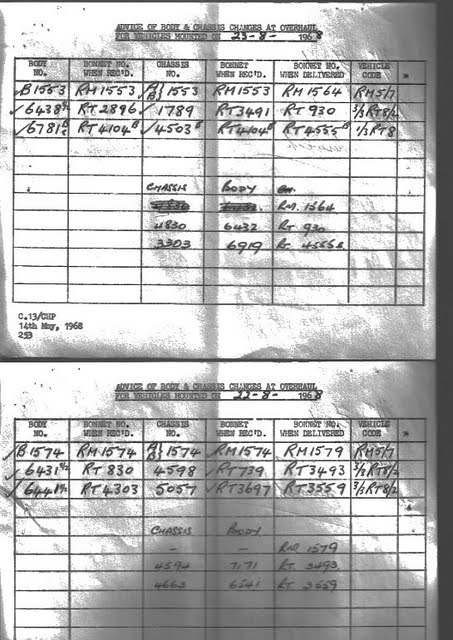 ADVICE OF BODY & CHASSIS CHANGES AT OVERHAUL
FOR VEHICLES MOUNTED ON 23-8- 1968
BODY NO. BONNET NO. WHEN REC'D. CHASSIS NO. BONNET WHEN REC'D. BONNET NO. WHEN DELIVERED VEHICLE CODE *
✓B1553 RM1553 1553 RM1553 RM 1564 RM5/7
✓6438 RT2896 ✓1789 RT3491 RT 930 3/3RT8/2
✓6781 RT4104 ✓4503 RT4104 RT4555 RT8
CHASSIS BODY
RM. 1564
4830 6432 RT 930
3303 6919 RT 4555
C.13/CHP
14th May, 1968
253
ADVICE OF BODY & CHASSIS CHANGES AT OVERHAUL
FOR VEHICLES MOUNTED ON 22-8- 1968
BODY NO. BONNET NO. WHEN REC'D. CHASSIS NO. BONNET WHEN REC'D. BONNET NO. WHEN DELIVERED VEHICLE CODE *
✓B1574 RM1574 1574 ✓RM1574 RM1579 RM5/7
✓6431 RT 830 4598 ✓RT739 RT3493 3/3RT8/2
✓6441 RT4303 5057 ✓RT3697 RT3559 3/3RT8/2
CHASSIS BODY
- - RM 1579
4594 7171 RT 3493
4663 6541 RT 3559